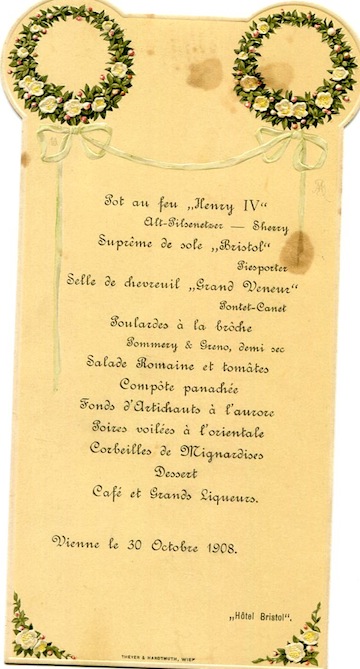 Pot au feu „Henry IV“
Alt-Pilsenetzer — Sherry
Suprême de sole „Bristol“
Piesporter
Selle de chevreuil „Grand Veneur“
Pontet-Canet
Poulardes à la brôche
Pommery & Greno, demi sec
Salade Romaine et tomâtes
Compôte panachée
Fonds d'Artichauts à l'aurore
Poires voilées à l'orientale
Corbeilles de Mignardises
Dessert
Café et Grands Liqueurs.
Vienne le 30 Octobre 1908.
„Hôtel Bristol“.
THEYER & HARDTMUTH, WIEN